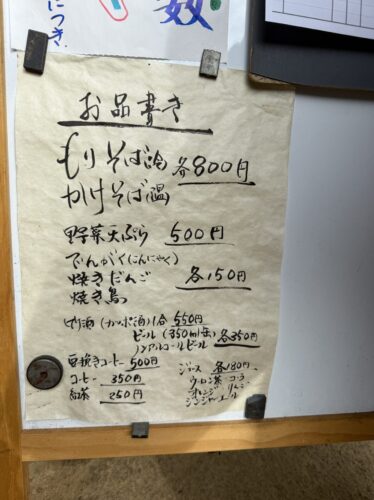 につき
数
お品書き
もりそば冷 各800円
かけそば温
野菜天ぷら 500円
でんがく(こんにゃく)
焼きだんご 各150円
焼き鳥
竹酒(カッポ酒)1合 550円
ビール(350ml缶) 各350円
ノンアルコールビール
豆挽きコーヒー 500円
コーヒー 350円
紅茶 250円
ジュース 各180円
ウーロン茶・コーラ
オレンジ・りんご
ジンジャエール